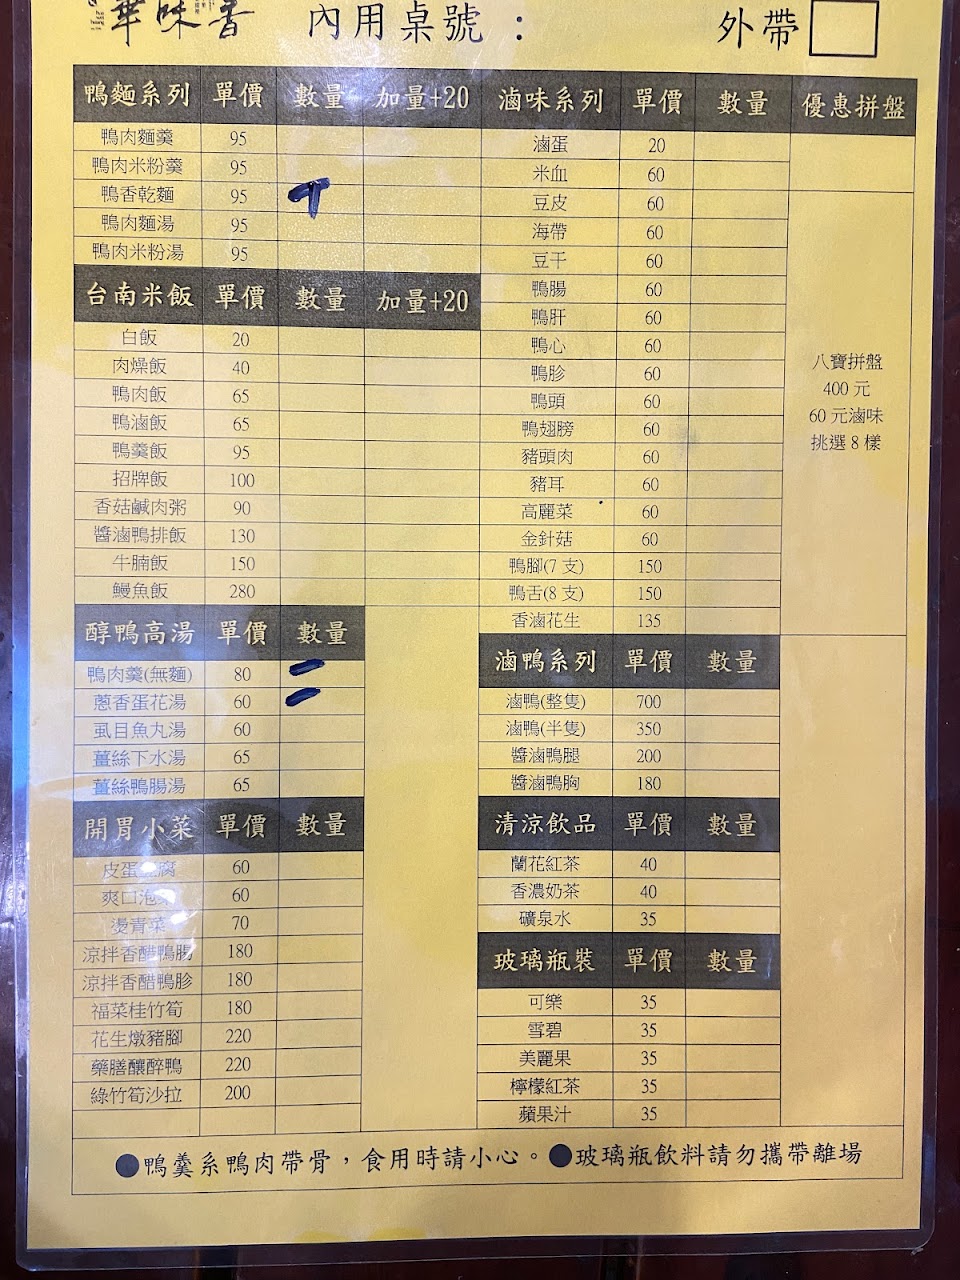 華味香
內用桌號：
外帶
鴨麵系列 單價 數量 加量+20
鴨肉麵羹 95
鴨肉米粉羹 95
鴨香乾麵 95
鴨肉麵湯 95
鴨肉米粉湯 95
台南米飯 單價 數量 加量+20
白飯 20
肉燥飯 40
鴨肉飯 65
鴨滷飯 65
鴨羹飯 95
招牌飯 100
香菇鹹肉粥 90
醬滷鴨排飯 130
牛腩飯 150
鰻魚飯 280
醇鴨高湯 單價 數量
鴨肉羹(無麵) 80 一
蔥香蛋花湯 60 一
虱目魚丸湯 60
薑絲下水湯 65
薑絲鴨腸湯 65
開胃小菜 單價 數量
皮蛋 腐 60
爽口泡 60
燙青菜 70
涼拌香醋鴨腸 180
涼拌香醋鴨胗 180
福菜桂竹筍 180
花生燉豬腳 220
藥膳釀醉鴨 220
綠竹筍沙拉 200
滷味系列 單價 數量
滷蛋 20
米血 60
豆皮 60
海帶 60
豆干 60
鴨腸 60
鴨肝 60
鴨心 60
鴨胗 60
鴨頭 60
鴨翅膀 60
豬頭肉 60
豬耳 60
高麗菜 60
金針菇 60
鴨腳(7 支) 150
鴨舌(8 支) 150
香滷花生 135
滷鴨系列 單價 數量
滷鴨(整隻) 700
滷鴨(半隻) 350
醬滷鴨腿 200
醬滷鴨胸 180
清涼飲品 單價 數量
蘭花紅茶 40
香濃奶茶 40
礦泉水 35
玻璃瓶裝 單價 數量
可樂 35
雪碧 35
美麗果 35
檸檬紅茶 35
蘋果汁 35
優惠拼盤
八寶拼盤
400 元
60 元滷味
挑選 8 樣
●鴨羹系鴨肉帶骨，食用時請小心。●玻璃瓶飲料請勿攜帶離場